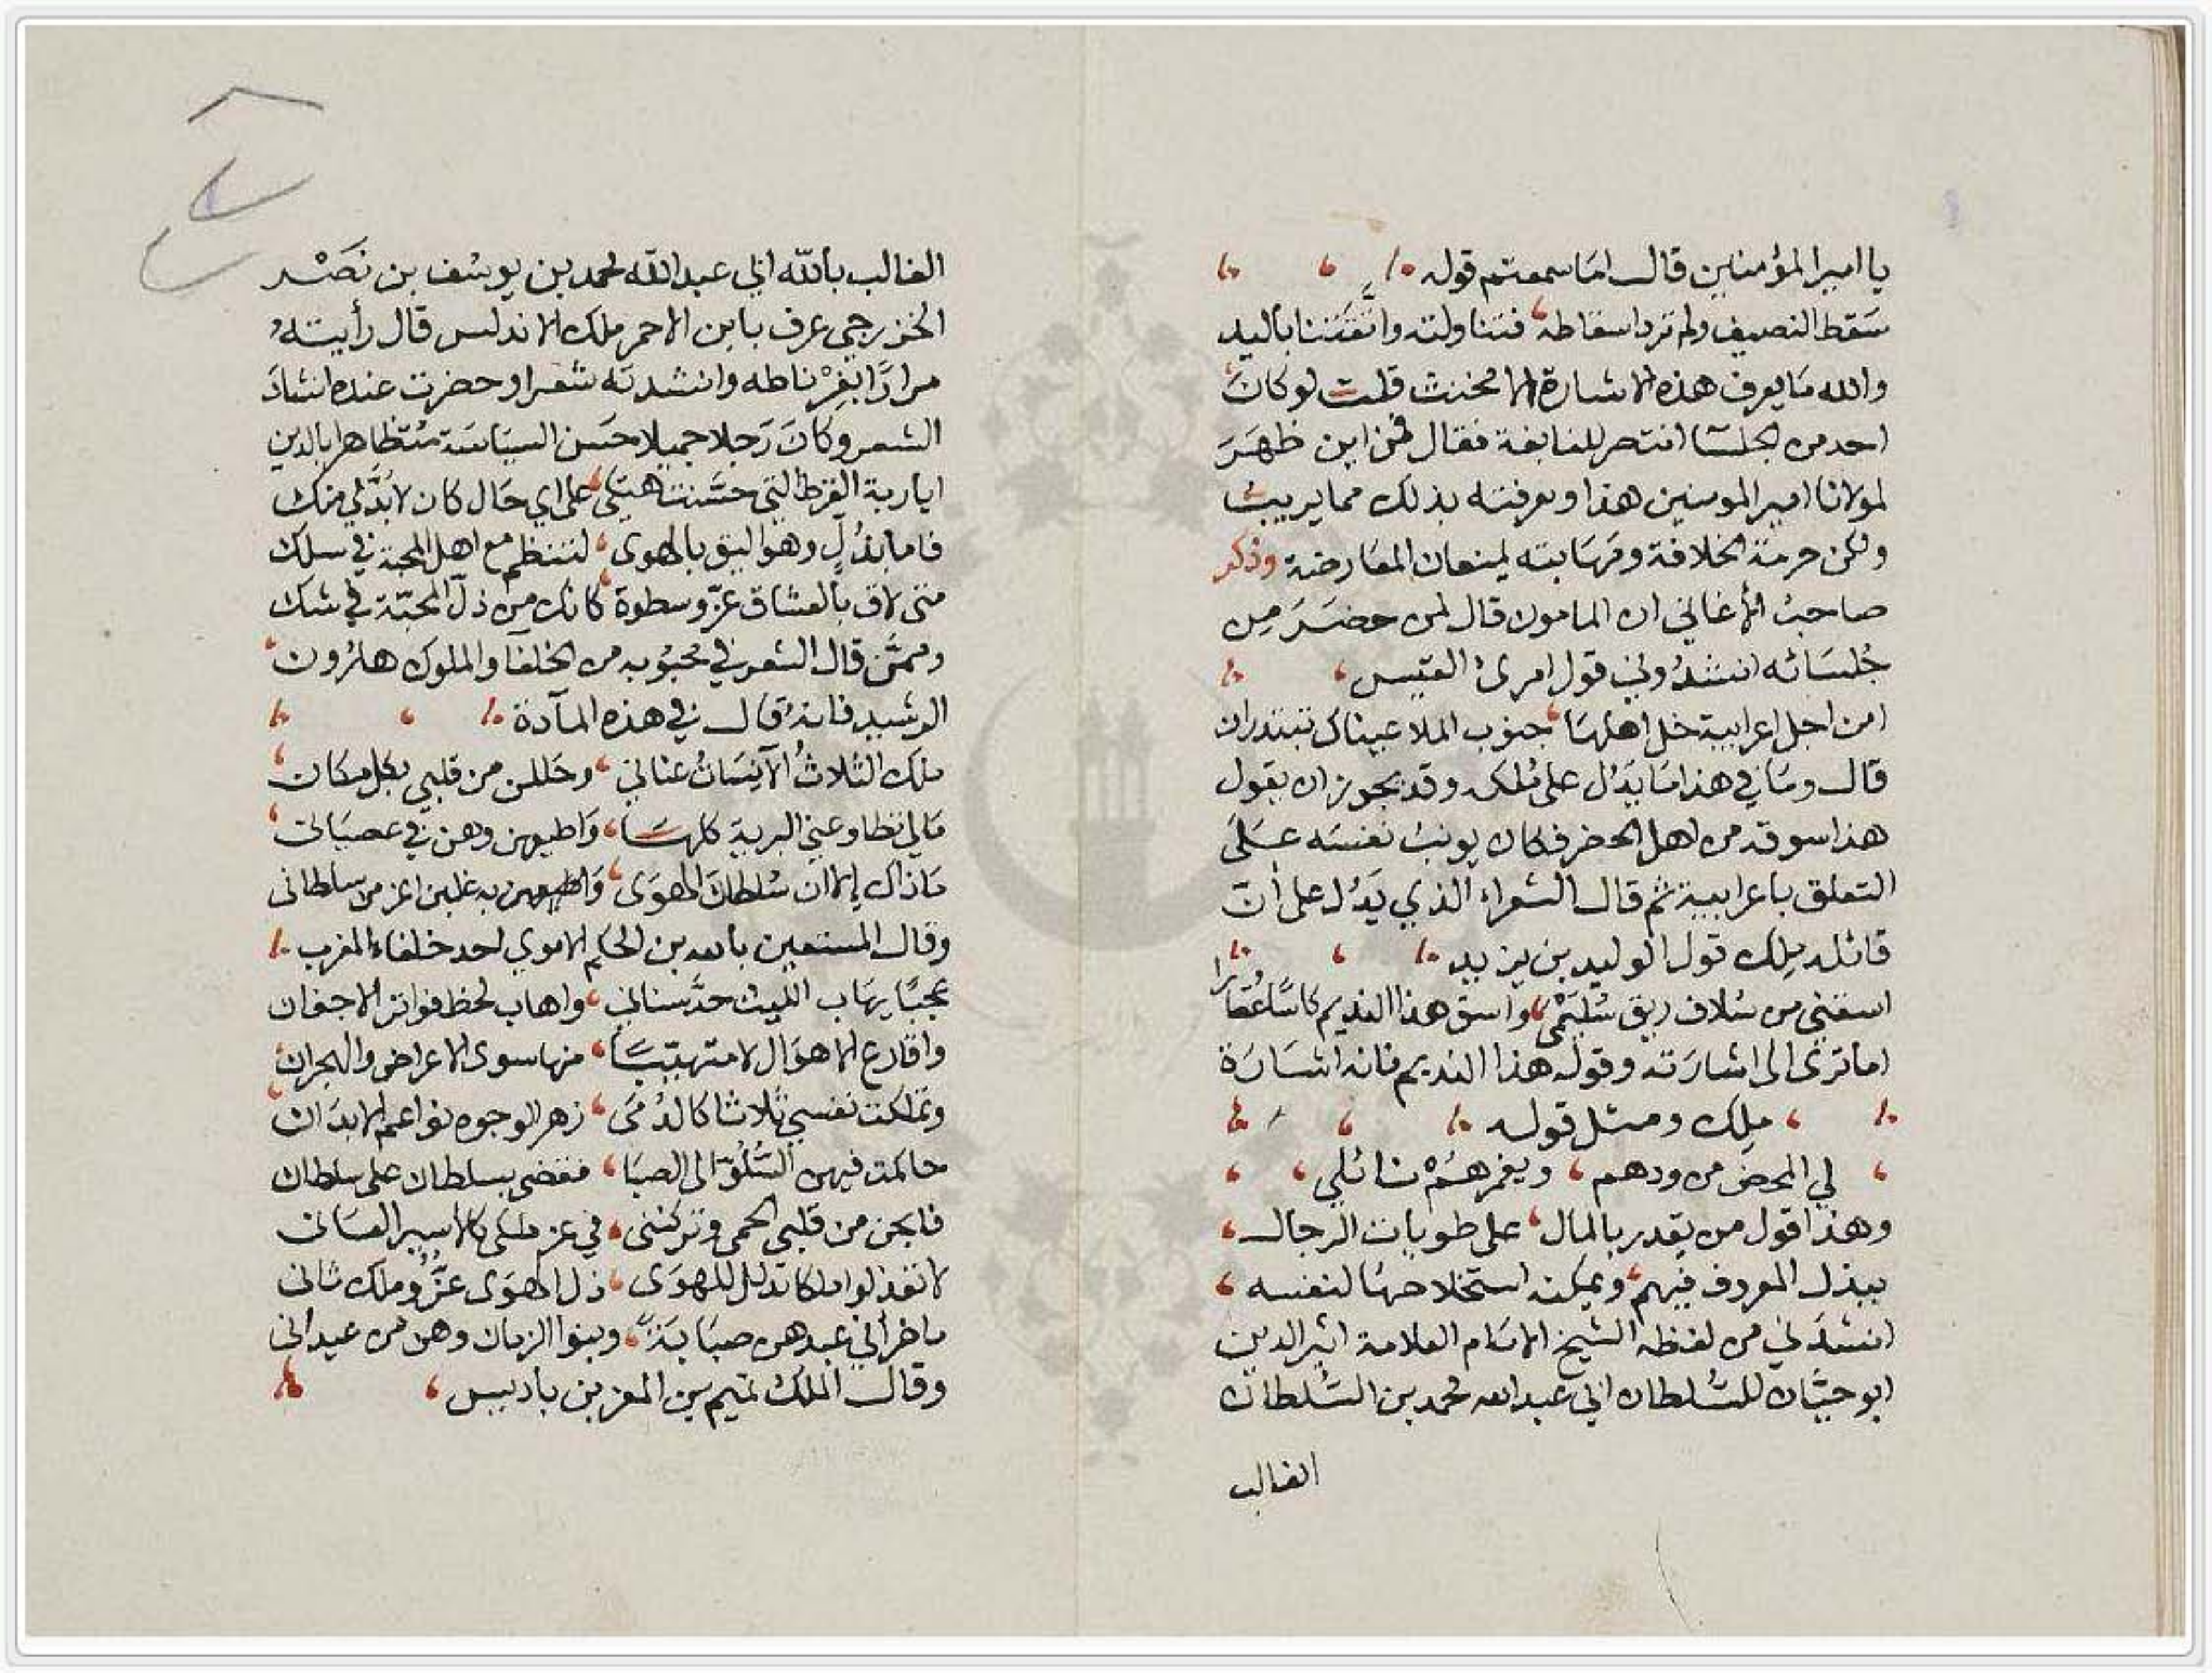 يا امير المؤمنين قال اما سمعتم قوله
سَقط النصيف ولم ترد اسقاطه فتناولته واتَّقتنا باليد
والله مَا يعرف هذه الاشارة الا مخنث قلت لو كان
احد من الجلسَا انتصر للنابغة فقال فمن اين ظهَرَ
لمولانا امير المومنين هذا ومعرفته بذلك مما يريبُ
ولكن حرمة الخلافة ومهَابته يمنعان المعَارضة وذكر
صاحبُ الأغاني ان المامون قال لمن حضَرَ مِن
جُلسَائه انشدُوني قول امرئ القيس
امن اجل اعرابية حل اهلهَا جنوب الملا عيناك تبتدران
قال ومَا في هذا مَا يَدُل على مُلكه وقد يجوز ان يقول
هذا سوقه من اهل الحضر فكان يونبُ نفسَه عَلىَ
التعلق باعرابية ثم قال الشعراء الذي يَدُل على أنّ
قائله مِلك قول الوليد بن يزيد
اسقني من سُلاف ريق سُليمْى واسق هذا النديم كاسًا عُقارًا
اما ترى الى اشارَته وقوله هذا النديم فانه اشَارَة
ملِك ومثل قوله
لي المحض من ودهم ويغمرهمُ نائلي
وهذا قول من يقدر بالمال على طويات الرجال
ببذل المعروف فيهم ويمكنه استخلاصهَا لنفسه
انشدَني من لفظه الشيخ الامَام العلامة اثير الدين
ابو حيَّان للسُلطان ابي عبد الله محمد بن السُلطان
الغالب
الغالب بالله ابي عبد الله محمد بن يوسُف بن نَصْر
الخزرجي عرف بابن الاحمر ملك الاندلس قال رأيتهُ
مرارًا بغرْناطه وانشدته شعرا وحضرت عنده انشادَ
الشعر وكَانَ رَجلا جميلا حسَن السيَاسَة مُتظاهرا بالدين
ايا ربة القرط التي حسَّنت هتكى على اي حَال كان لا بُدَّ لي منك
فاما بذُلٍ وهو اليق بالهوى لتنتظم مع اهل المحبة في سلك
متى لاق بالعشاق عزّ وسطوة كانك من ذلّ المحبّة في شك
وممَّن قال الشعر في محبُوبه من الخلفآ والملوك هَارُون
الرشيد فانهُ قال في هذه المآدة
ملك الثلاثُ الآنسَاتُ عناني وحَللن من قلبي بكل مكان
مَالي تطاوعني البرية كلهَا وَاطيعهن وهن في عصيَاني
مَا ذاك إلا ان سُلطانَ الهوَى وبه غلبن اعز من سلطانى
وقال المستعين بالله بن الحكم الاموي احد خلفاء المغرب
عجبًا يهَاب الليث حدَّ سناني واهاب لحظ فواتر الاجفان
واقارع الاهوَال لا متهيّبًا منها سوى الاعراض والهجران
وتملكت نفسي ثلاثا كالدُمَى زهر الوجوه نواعم الابدَان
حاكمت فيهن السُلُوّ الى الصبَا فقضى بسلطان على سلطان
فابحن من قلبي الحمى وتركننى في عز ملكى كالأسير العَانى
لا تعذلوا ملكا تذلل للهوَى ذل الهوَى عزُّ وملك ثانى
ما ضر أني عبدهن صبَابَةً وبنوا الزمان وهن من عبداني
وقال الملك تميم بن المعز بن باديس